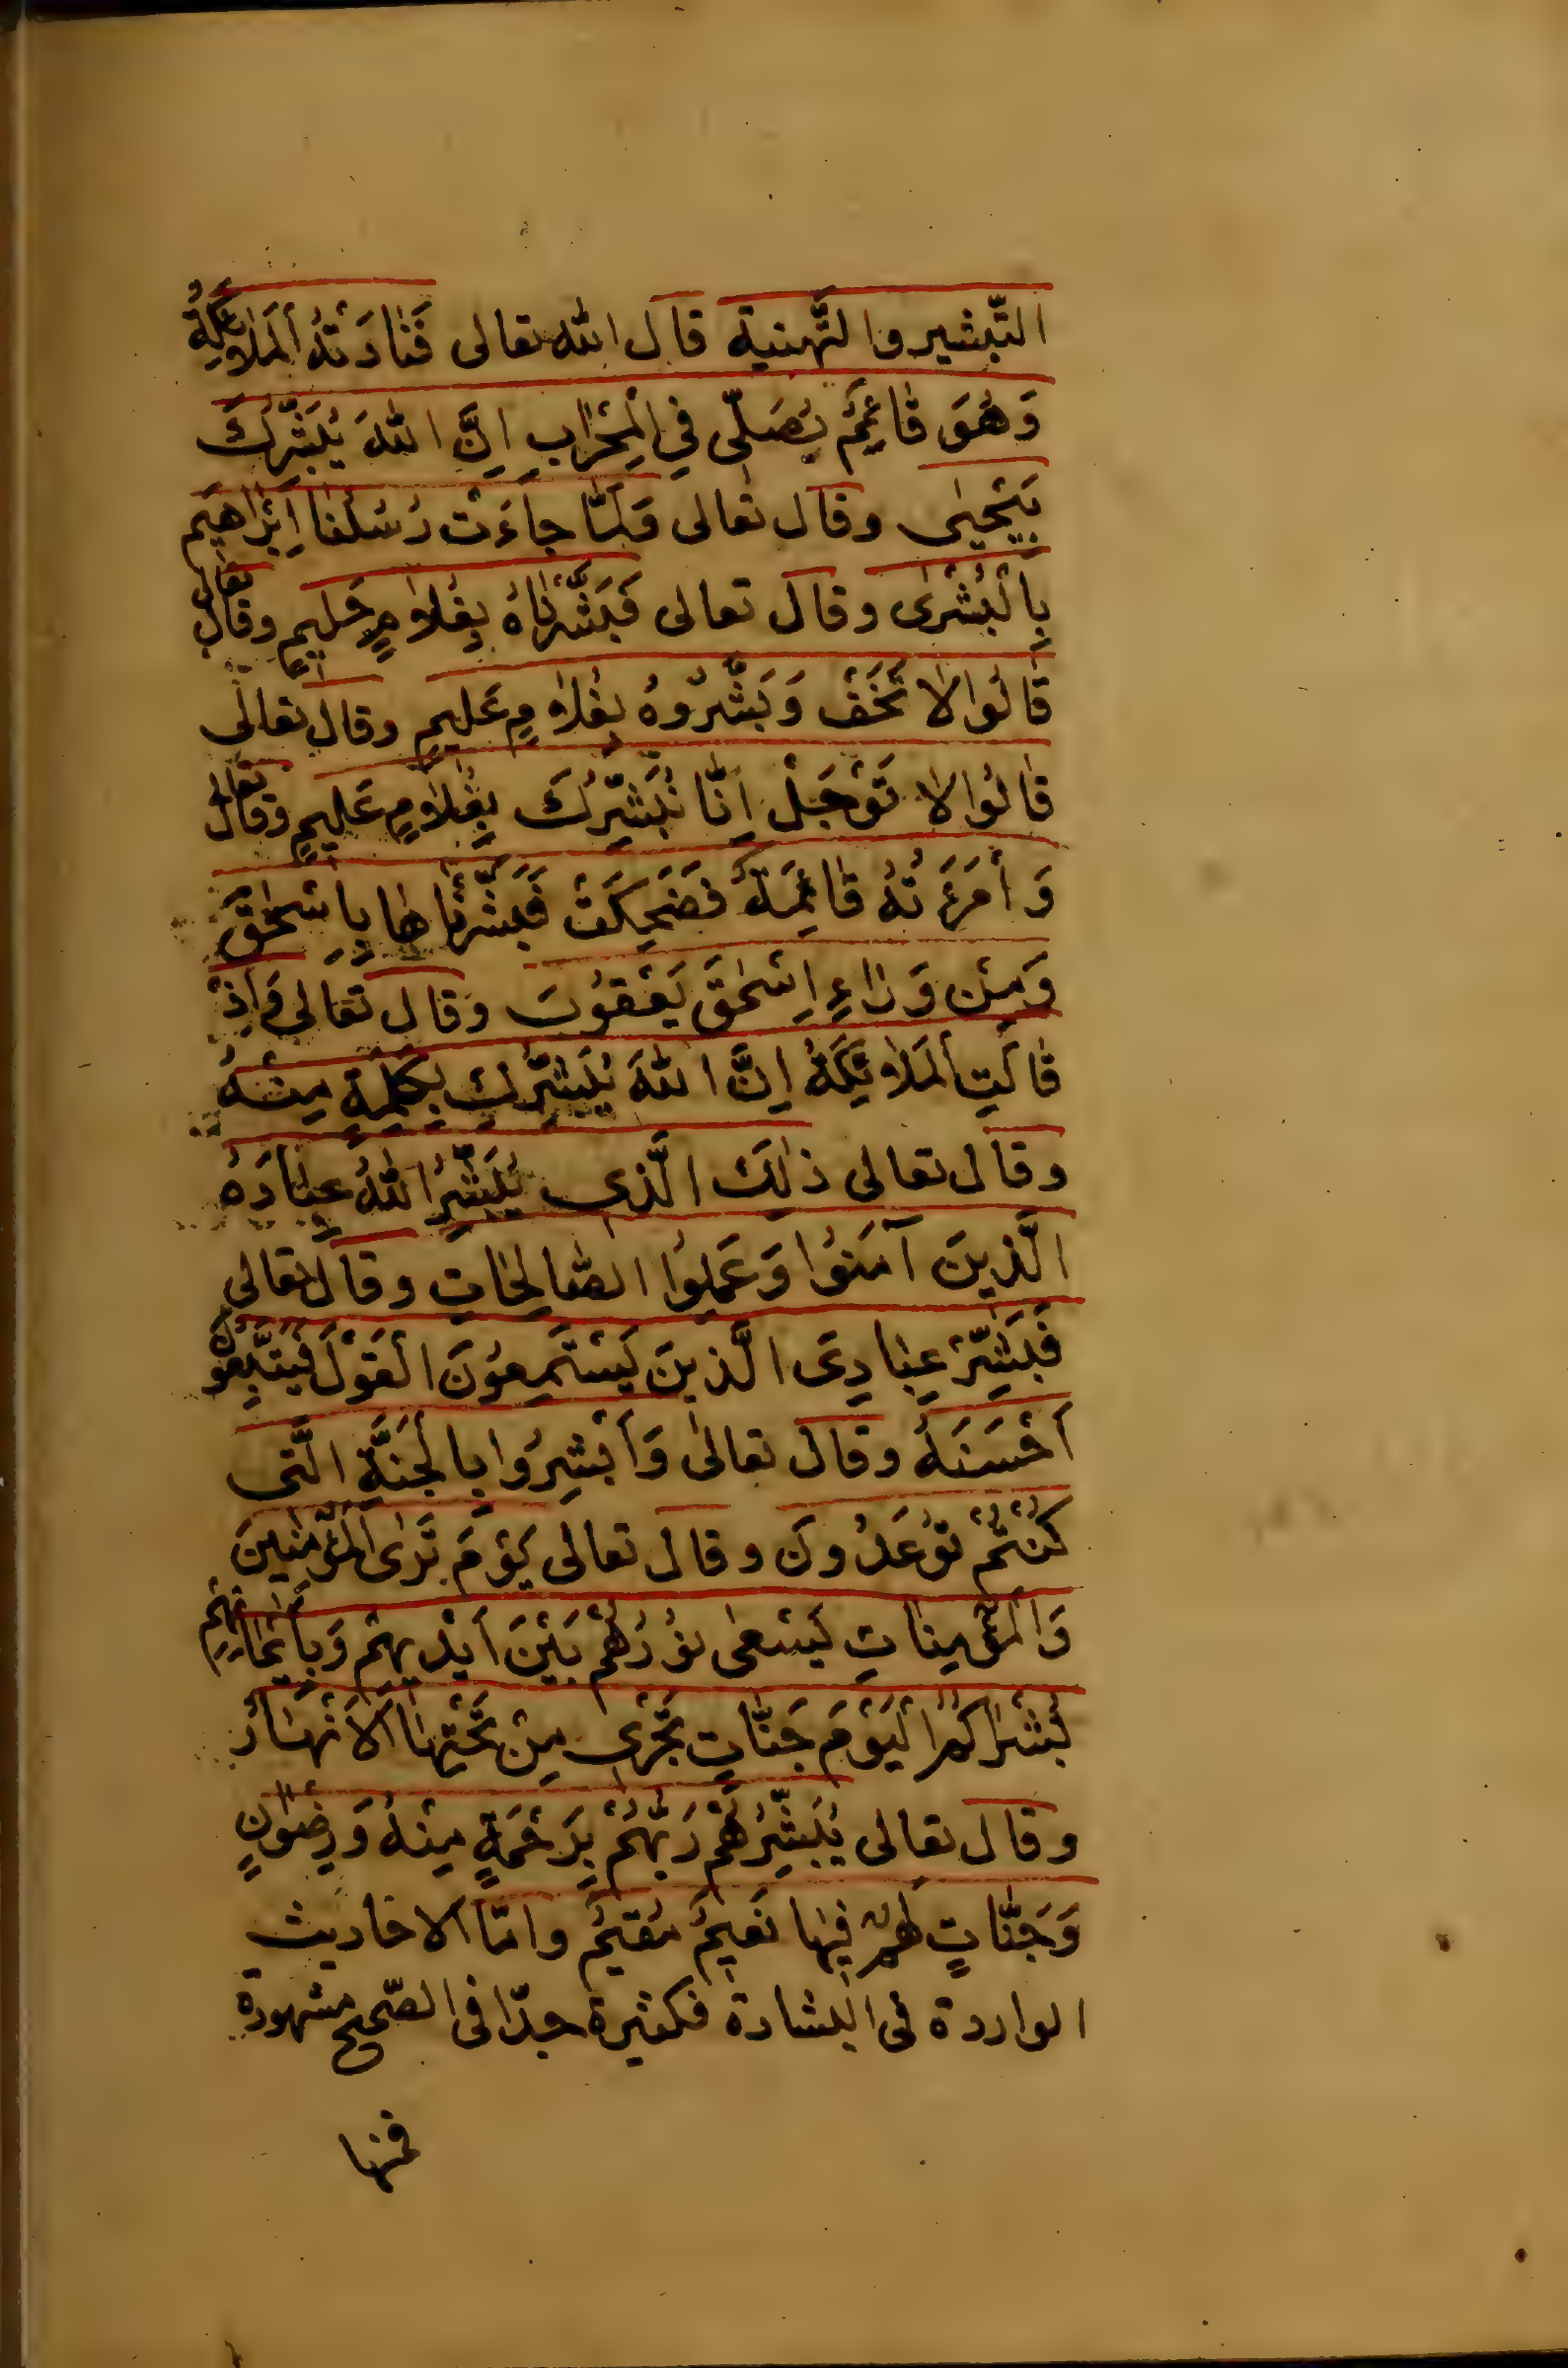 التّبشير والتّهنية قال الله تعالى فَنَادَتْهُ ٱلْمَلَائِكَةُ
وَهُوَ قَائِمٌ يُصَلّى فِي ٱلْمِحْرَابِ اِنَّ اللّٰهَ يُبَشِّرُكَ
بِيَحْيٰى وقال تعالى وَلَمَّا جاءَتْ رُسُلُنا اِبْرٰاهيمَ
بِالْبُشْرٰى وقال تعالى فَبَشَّرْنٰاهُ بِغُلاٰمٍ حَليمٍ وقال تعالى
قٰالُوا لاٰ تَخَفْ وَبَشَّرُوهُ بِغُلاٰمٍ عَليمٍ وقال تعالى
قٰالُوا لاٰ تَوْجَلْ اِنّٰا نُبَشِّرُكَ بِغُلاٰمٍ عَليمٍ وقال تعالى
وَٱمْرَءَتُهُ قٰائِمَةٌ فَضَحِكَتْ فَبَشَّرْنٰاهٰا بِاِسْحٰقَ
وَمِنْ وَرٰاءِ اِسْحٰقَ يَعْقُوبَ وقال تعالى وَاِذْ
قٰالَتِ ٱلْمَلاٰئِكَةُ اِنَّ اللّٰهَ يُبَشِّرُكِ بِكَلِمَةٍ مِنْهُ
وقال تعالى ذٰلِكَ الَّذي يُبَشِّرُ اللّٰهُ عِبٰادَهُ
الَّذينَ آمَنُوا وَعَمِلُوا الصّٰالِحٰاتِ وقال تعالى
فَبَشِّرْ عِبٰادِىَ الَّذينَ يَسْتَمِعُونَ الْقَوْلَ فَيَتَّبِعُونَ
أَحْسَنَهُ وقال تعالىٰ وَأَبْشِرُوا بِالْجَنَّةِ الَّتى
كُنْتُمْ تُوعَدُونَ وقال تعالى يَوْمَ تَرَى ٱلْمُؤْمِنينَ
وَٱلْمُؤْمِنٰاتِ يَسْعىٰ نُورُهُمْ بَيْنَ اَيْديهِمْ وَبِأَيْمٰانِهِمْ
بُشْرٰاكُمُ ٱلْيَوْمَ جَنّٰاتٍ تَجْرى مِنْ تَحْتِهَا ٱلْاَنْهٰارُ
وقال تعالى يُبَشِّرُهُمْ رَبُّهُمْ بِرَحْمَةٍ مِنْهُ وَرِضْوٰانٍ
وَجَنّٰاتٍ لَهُمْ فيهٰا نَعيمٌ مُقيمٌ وامّا الاحاديث
الواردة فى البشارة فكثيرة جدّا فى الصّحيح مشهورة
فمنها